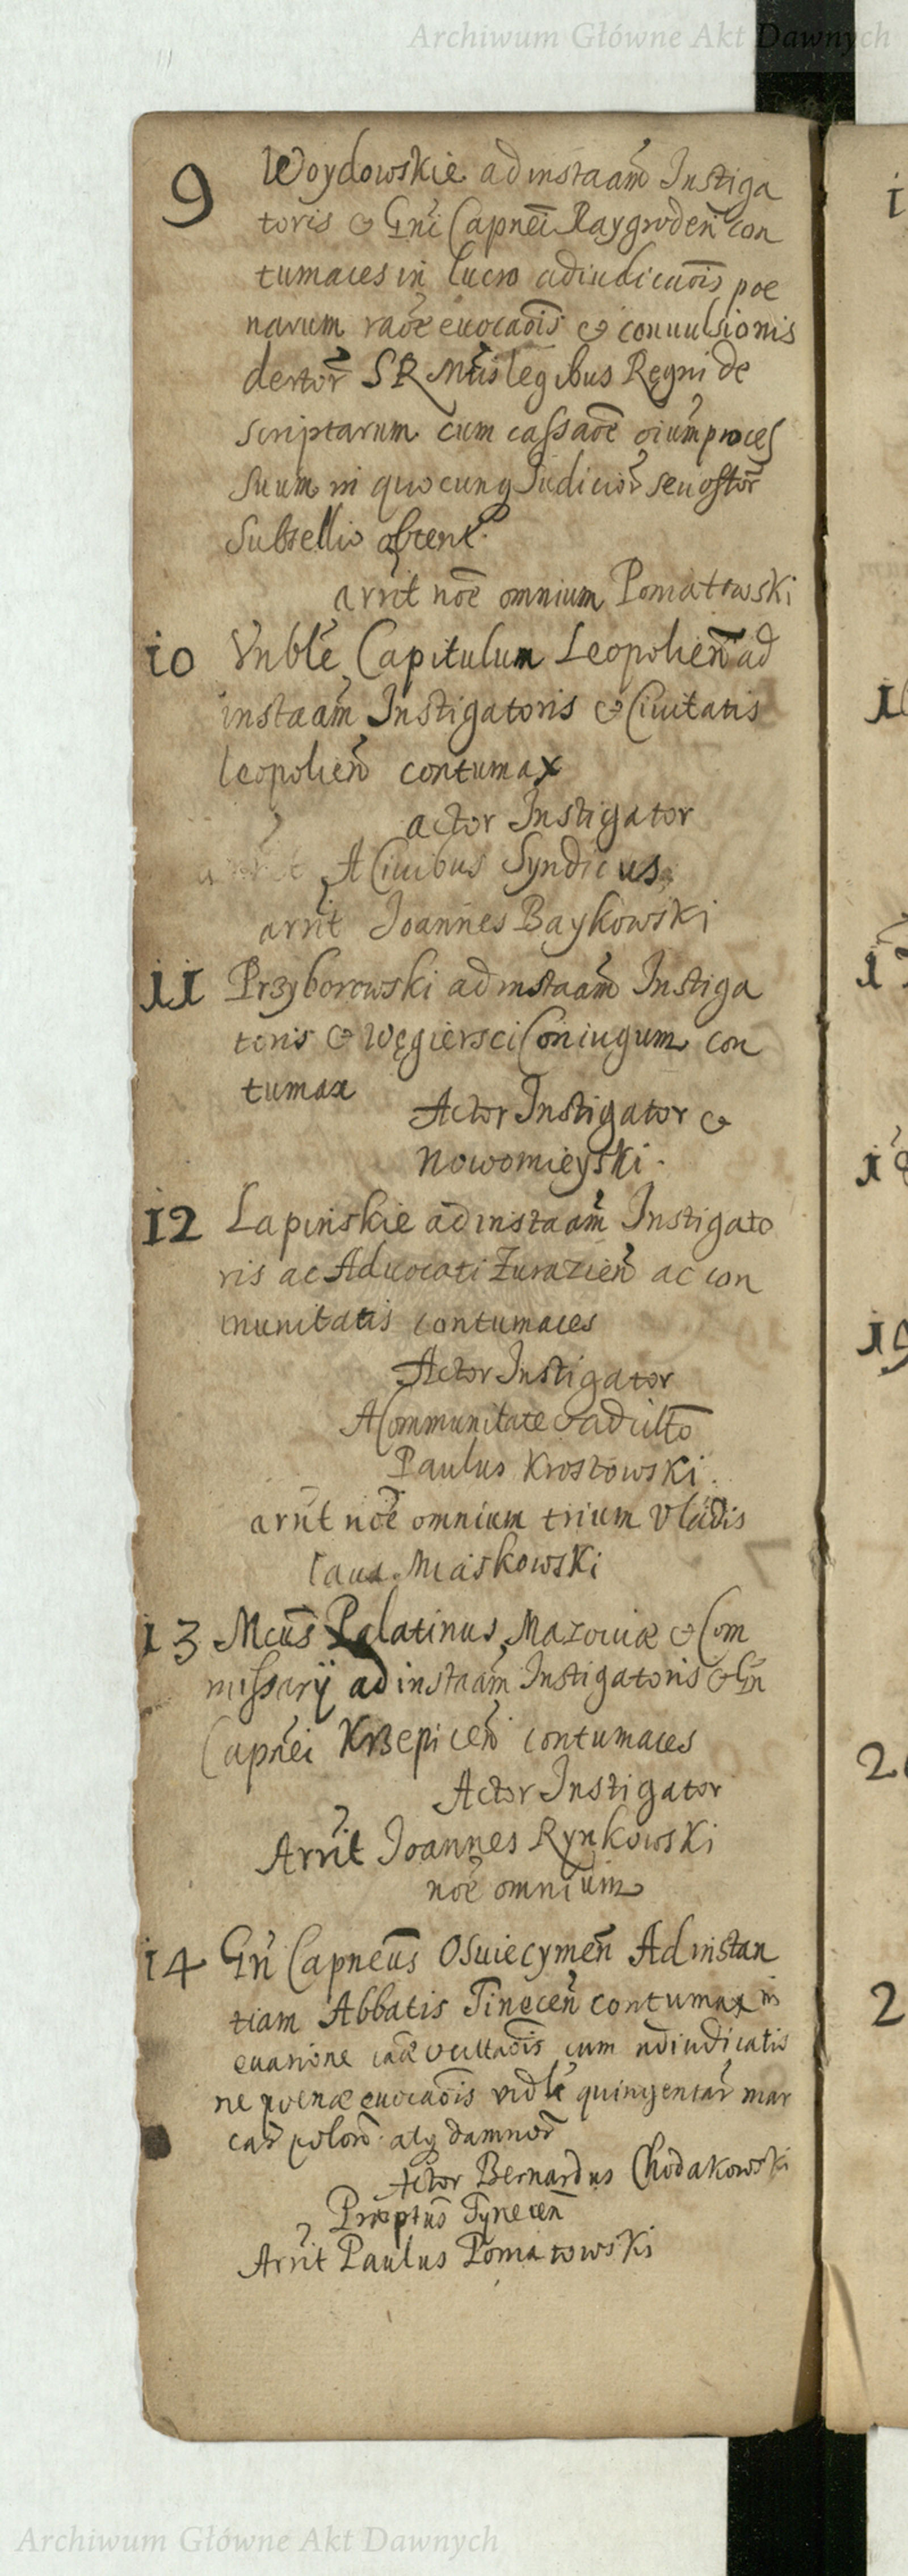 Archiwum Główne Akt Dawnych
9 Woydowskie ad instaam̃ Instiga
toris & Gñi Capnei Raygroden̄ con
tumaces in lucro adiudicaõis poe
narum raõe euocaõis & conuulsionis
SR Mtis legibus Regni de
scriptarum cum cassaõe oium proces
suum in quocunq Judicior̃ seu
Subsellio obtent.
arrit noẽ omnium Pomatowski
10 Vnble Capitulum Leopolien̄ ad
instaam̃ Instigatoris & Ciuitatis
Leopolien̄ contumax
actor Instigator
A Ciuibus Syndicus
arrit Joannes Baykowski
11 Przyborowski ad instaam̃ Instiga
toris & Węgiersci Coniugum con
tumax
Actor Instigator &
Nowomieyski.
12 Lapinskie ad instaam̃ Instigato
ris ac Aduocati Zurazien̄ ac con
munitatis contumaces
Actor Instigator
A Communitate &
Paulus Krostowski.
arrit noẽ omnium trium Vladis
laus Miaskowski
13 Mcus̄ Palatinus Mazouiæ & Com
missarij ad instaam̃ Instigatoris & Gn̄
Capnei Krzepicen̄ contumaces
Actor Instigator
Arrit Joannes Rynkowski
noẽ omnium
14 Gn̄ Capneus̄ Osuiecymen̄ Ad instan
tiam Abbatis Tinecen̄ contumax in
euasione caã cum adiudicatio
ne poenæ euocaõis vidle quingentar̃ mar
car̃ polon̄. atq damnor̃
Actor Bernardus Chodakowski
Præptus̄ Tynecen̄
Arrit Paulus Pomatowski
Archiwum Główne Akt Dawnych